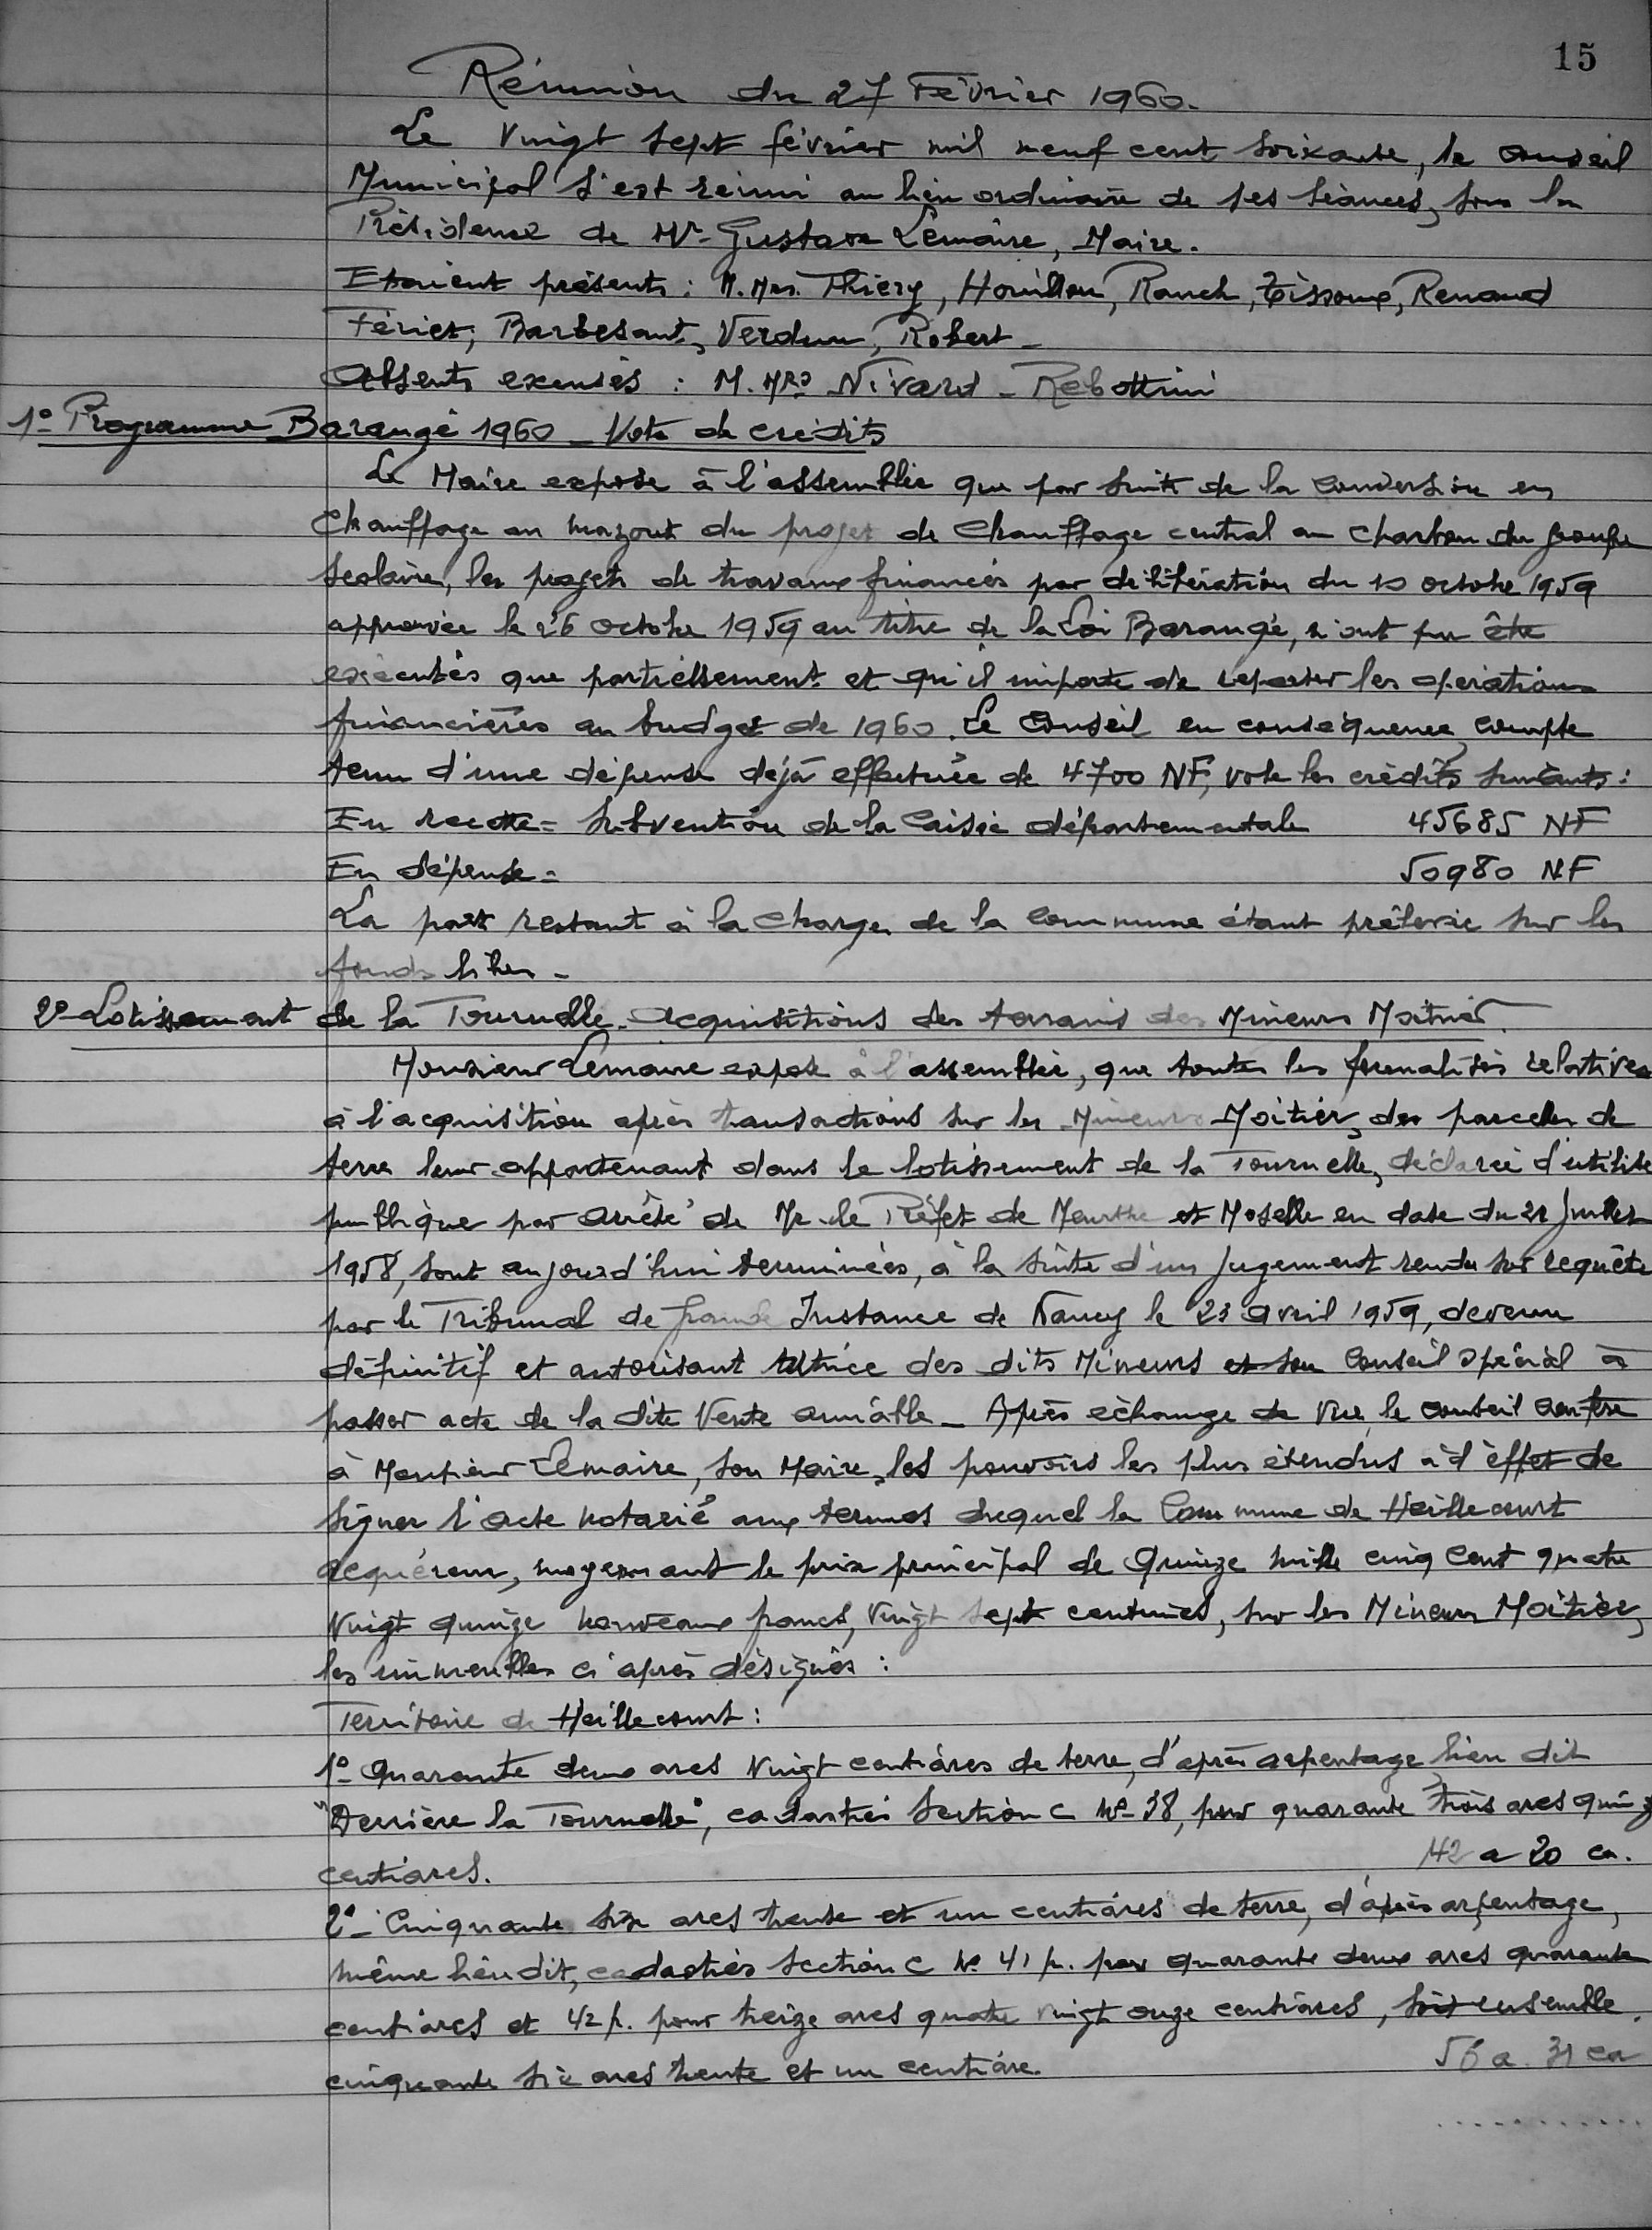 15
Réunion du 27 Février 1960.
Le Vingt Sept février mil neuf cent soixante, le Conseil
Municipal s'est réuni au lieu ordinaire de ses séances, sous la
Présidence de Mr. Gustave Lemaire, Maire.
Etaient présents : M.Mrs. Thiéry, Houillon, Rauch, Tissoux, Renaud
Fériet, Barbesant, Verdun, Robert _
Absents excusés : M.MRs Nivard _ Rebottini
1° Programme Barangé 1960 _ Vote de crédits
Le Maire expose à l'assemblée que par suite de la conversion en
chauffage au mazout du projet de chauffage central au charbon du groupe
scolaire, les projets de travaux financés par délibération du 10 octobre 1959
approuvée le 26 octobre 1959 au titre de la Loi Barangé, n'ont pu être
exécutés que partiellement et qu'il importe de reporter les opérations
financières au budget de 1960. Le Conseil en conséquence, compte
tenu d'une dépense déjà effectuée de 4700 NF, vote les crédits suivants :
En recette = Subvention de la Caisse départementale 45685 NF
En dépense = 50980 NF
La part restant à la charge de la commune étant prélevée sur les
fonds libres _
2° Lotissement de la Tournelle. Acquisitions des terrains des Mineurs Moitrier.
Monsieur Lemaire expose à l'assemblée, que toutes les formalités relatives
à l'acquisition après transactions sur les Mineurs Moitier, des parcelles de
terre leur appartenant dans le lotissement de la Tournelle, déclarée d'utilité
publique par arrêté de Mr. le Préfet de Meurthe et Moselle en date du 21 Juillet
1958, sont aujourd'hui terminées, à la suite d'un jugement rendu sur requête
par le Tribunal de Grande Instance de Nancy le 23 avril 1959, devenu
définitif et autorisant tutrice des dits Mineurs et son Conseil spécial à
passer acte de la dite Vente amiable _ Après échange de vue, le conseil confère
à Monsieur Lemaire, son Maire, les pouvoirs les plus étendus à l'effet de
signer l'acte notarié aux termes duquel la Commune de Heillecourt
acquéreur, moyennant le prix principal de Quinze mille cinq cent quatre
vingt quinze nouveaux francs, Vingt Sept centimes, sur les Mineurs Moitier,
les immeubles ci après désignés :
Territoire de Heillecourt :
1° Quarante deux ares Vingt centiares de terre, d'après arpentage, lieu dit
"Derrière la Tournelle", cadastrés Section C N° 38, pour quarante trois ares quinze
centiares. 42 a 20 ca.
2° _ Cinquante six ares trente et un centiares de terre, d'après arpentage,
même lieu dit, cadastrés Section C N° 41 p. pour quarante deux ares quarante
centiares et 42 p. pour treize ares quatre vingt onze centiares, soit ensemble
cinquante six ares trente et un centiare. 56 a. 31 ca